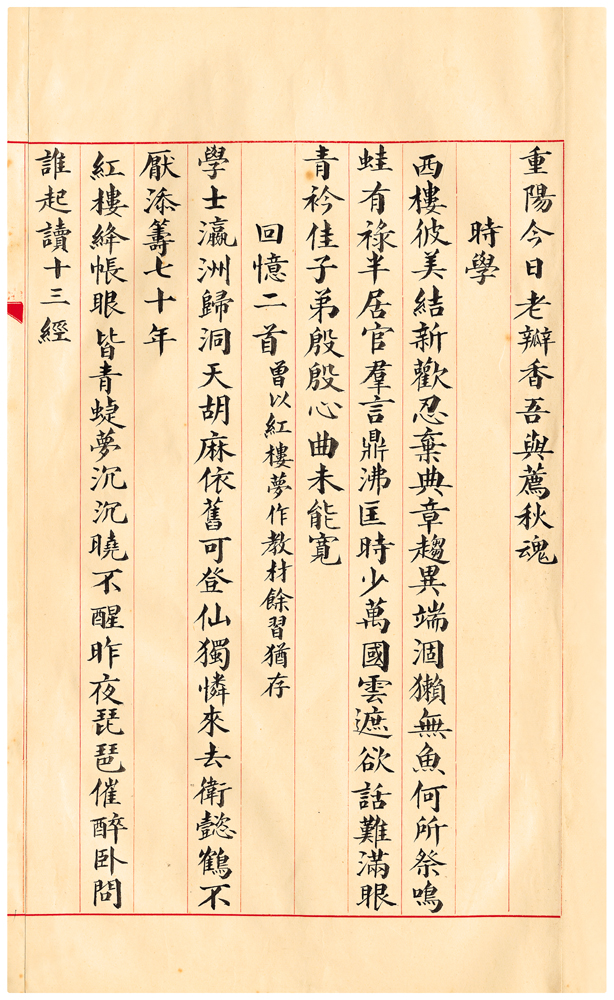 重陽今日老瓣香吾與薦秋魂
時學
西樓彼美結新歡忍棄典章趨異端涸獺無魚何所祭鳴
蛙有祿半居官羣言鼎沸匡時少萬國雲遮欲話難滿眼
青衿佳子弟殷殷心曲未能寬
回憶二首曾以紅樓夢作教材餘習猶存
學士瀛洲歸洞天胡麻依舊可登仙獨憐來去衛懿鶴不
厭添籌七十年
紅樓絳帳眼皆青蜨夢沉沉曉不醒昨夜琵琶催醉卧問
誰起讀十三經